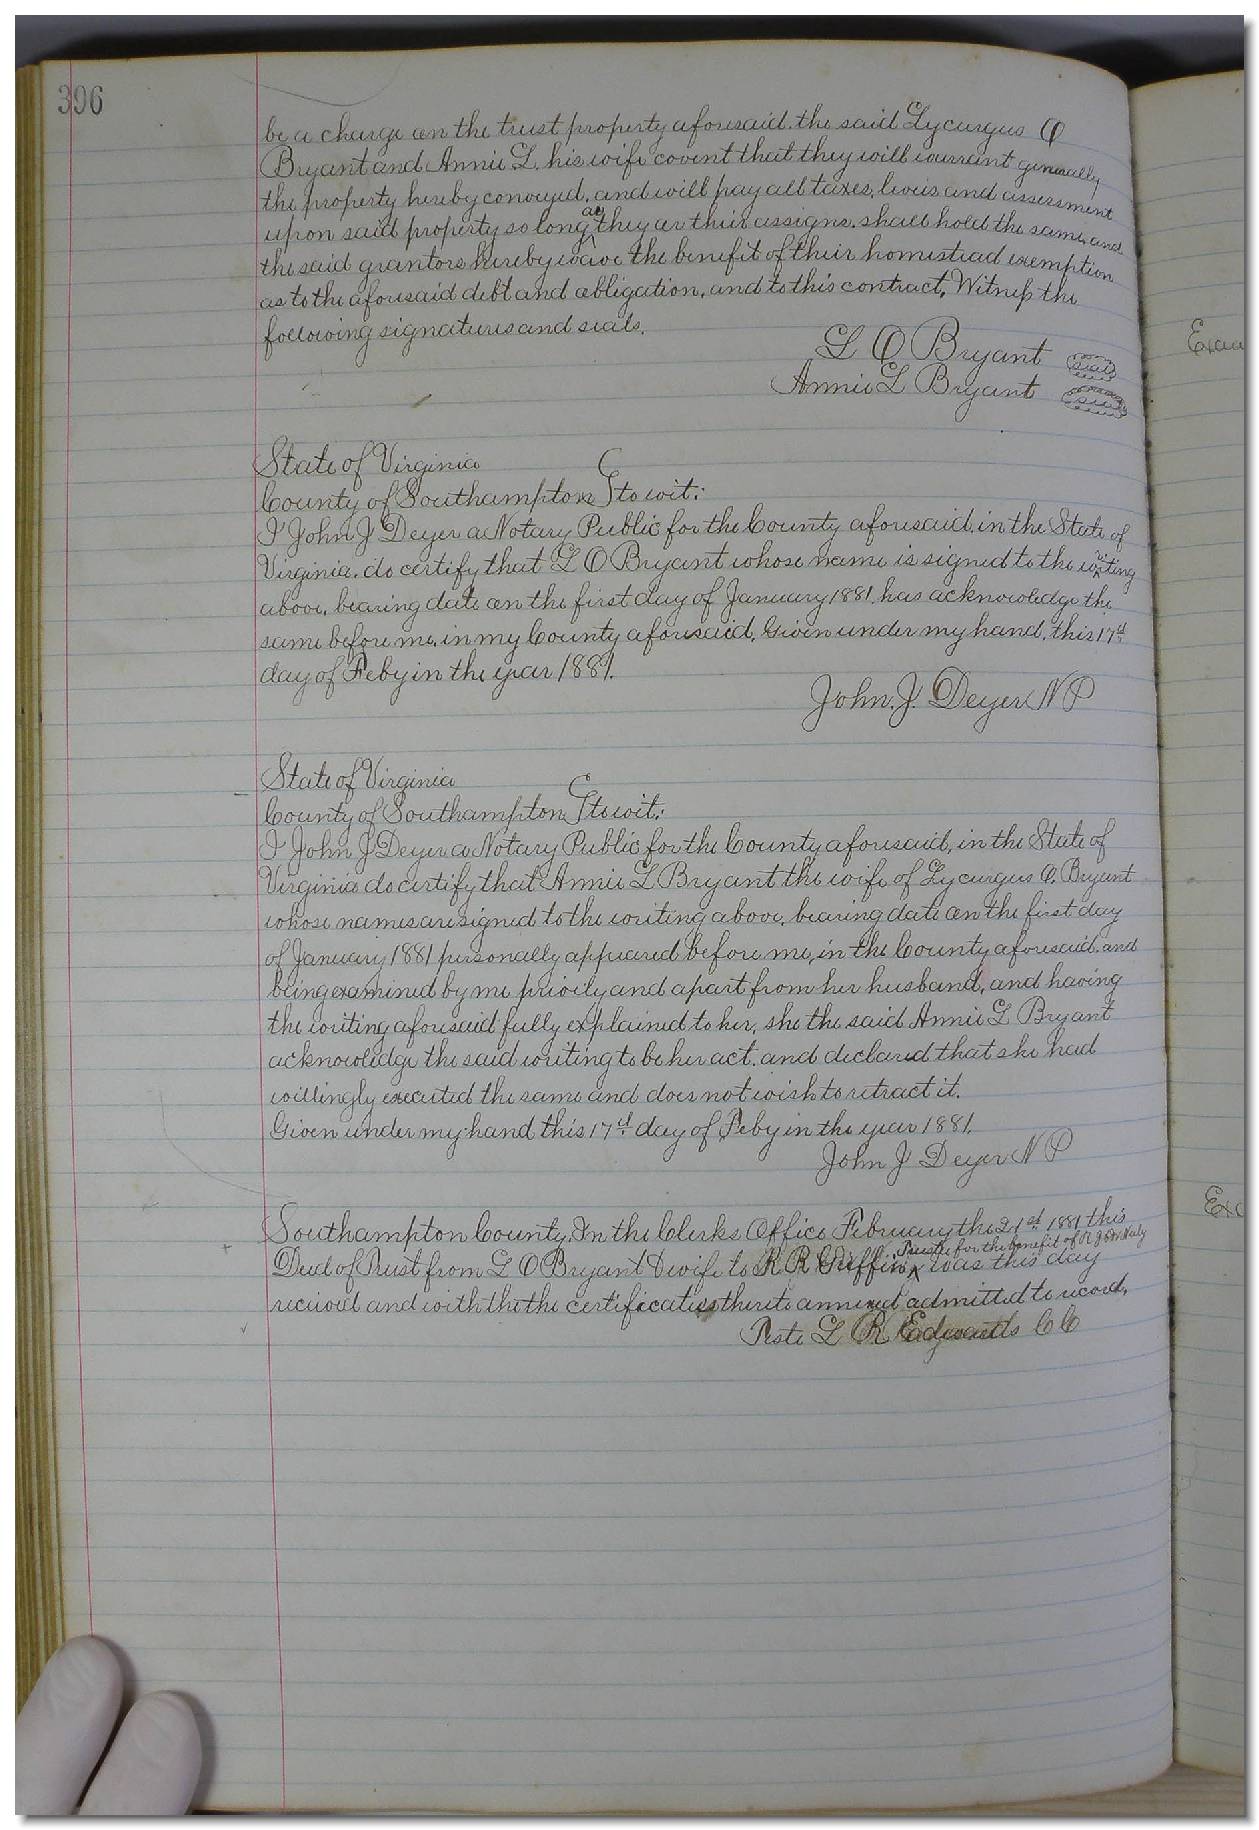 396
be a charge on the trust property aforesaid. the said Lycurgus O
Bryant and Annie L. his wife covent that they will warrent generally
the property hereby conveyed, and will pay all taxes, levies and assessment
upon said property so long as they or their assigns. shall hold the same, and
the said grantors hereby wave the benefit of their homestead exemption
as to the aforesaid debt and obligation, and to this contract, Witness the
following signatures and seals.
L O Bryant seal
Annie L Bryant seal
State of Virginia
County of Southampton to wit:
I John J Deyer a Notary Public for the County aforesaid, in the State of
Virginia, do certify that L O Bryant whose name is signed to the writing
above, bearing date on the first day of January 1881 has acknowledge the
same before me, in my County aforesaid, Given under my hand, this 17th
day of Feby in the year 1881.
John. J. Deyer N P
State of Virginia
County of Southampton to wit:
I John J Deyer a Notary Public for the County aforesaid, in the State of
Virginia do certify that Annie L Bryant the wife of Lycurgus O. Bryant
whose names are signed to the writing above, bearing date on the first day
of January 1881 personally appeared before me, in the County aforesaid, and
being examined by me privily and apart from her husband, and having
the writing aforesaid fully explained to her, she the said Annie L Bryant
acknowledge the said writing to be her act, and declared that she had
willingly executed the same and does not wish to retract it.
Given under my hand this 17th day of Feby in the year 1881.
John J Deyer N P
Southampton County, In the Clerks Office February the 21st 1881 this
Deed of Trust from L O Bryant & wife to R R Griffin Trustee for the benefit of R J & W was this day
received and with the the certificates thereto annexed admitted to record,
Teste L R Edwards C C
Exam
Exa